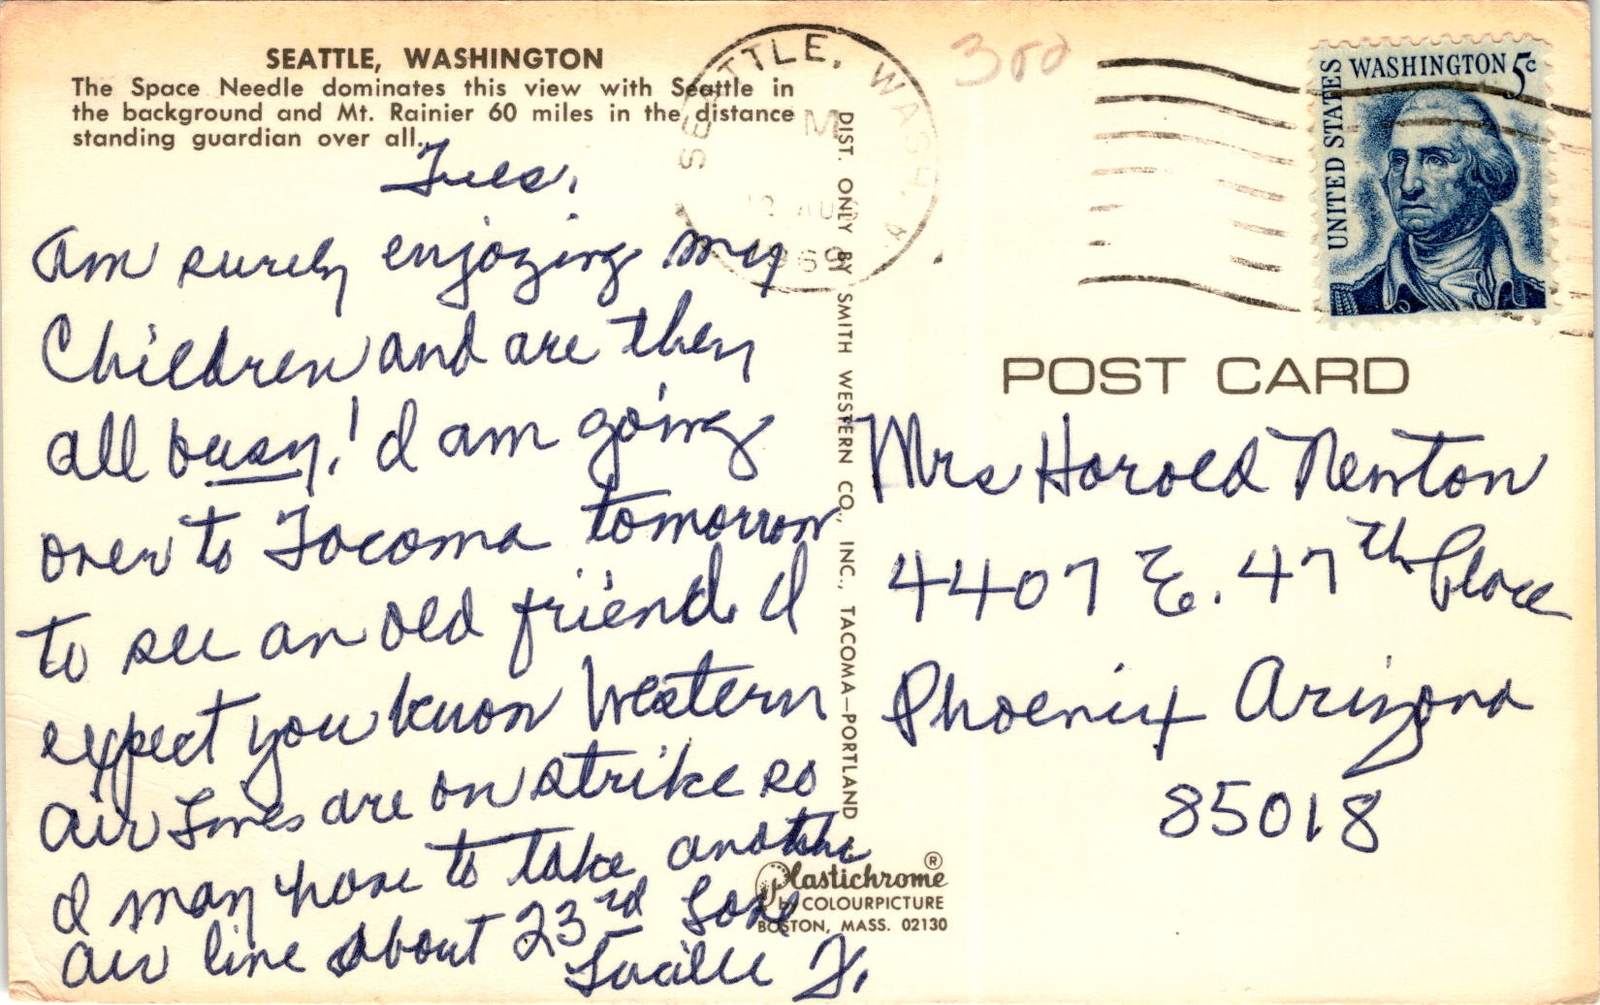 SEATTLE, WASHINGTON
The Space Needle dominates this view with Seattle in
the background and Mt. Rainier 60 miles in the distance
standing guardian over all.
Tues.
Am surely enjoying my
Children and are they
all busy! I am going
over to Tacoma tomorrow
to see an old friend I
expect you know Western
Air Lines are on strike so
I may have to take another
air line about 23rd Love
Lucille F.
DIST. ONLY BY SMITH WESTERN CO., INC., TACOMA—PORTLAND
Plastichrome ®
by COLOURPICTURE
BOSTON, MASS. 02130
SEATTLE, WASH.
M
12 AUG
1969
3rd
UNITED STATES
WASHINGTON 5c
POST CARD
Mrs Harold Newton
4407 E. 47th Place
Phoenix Arizona
85018